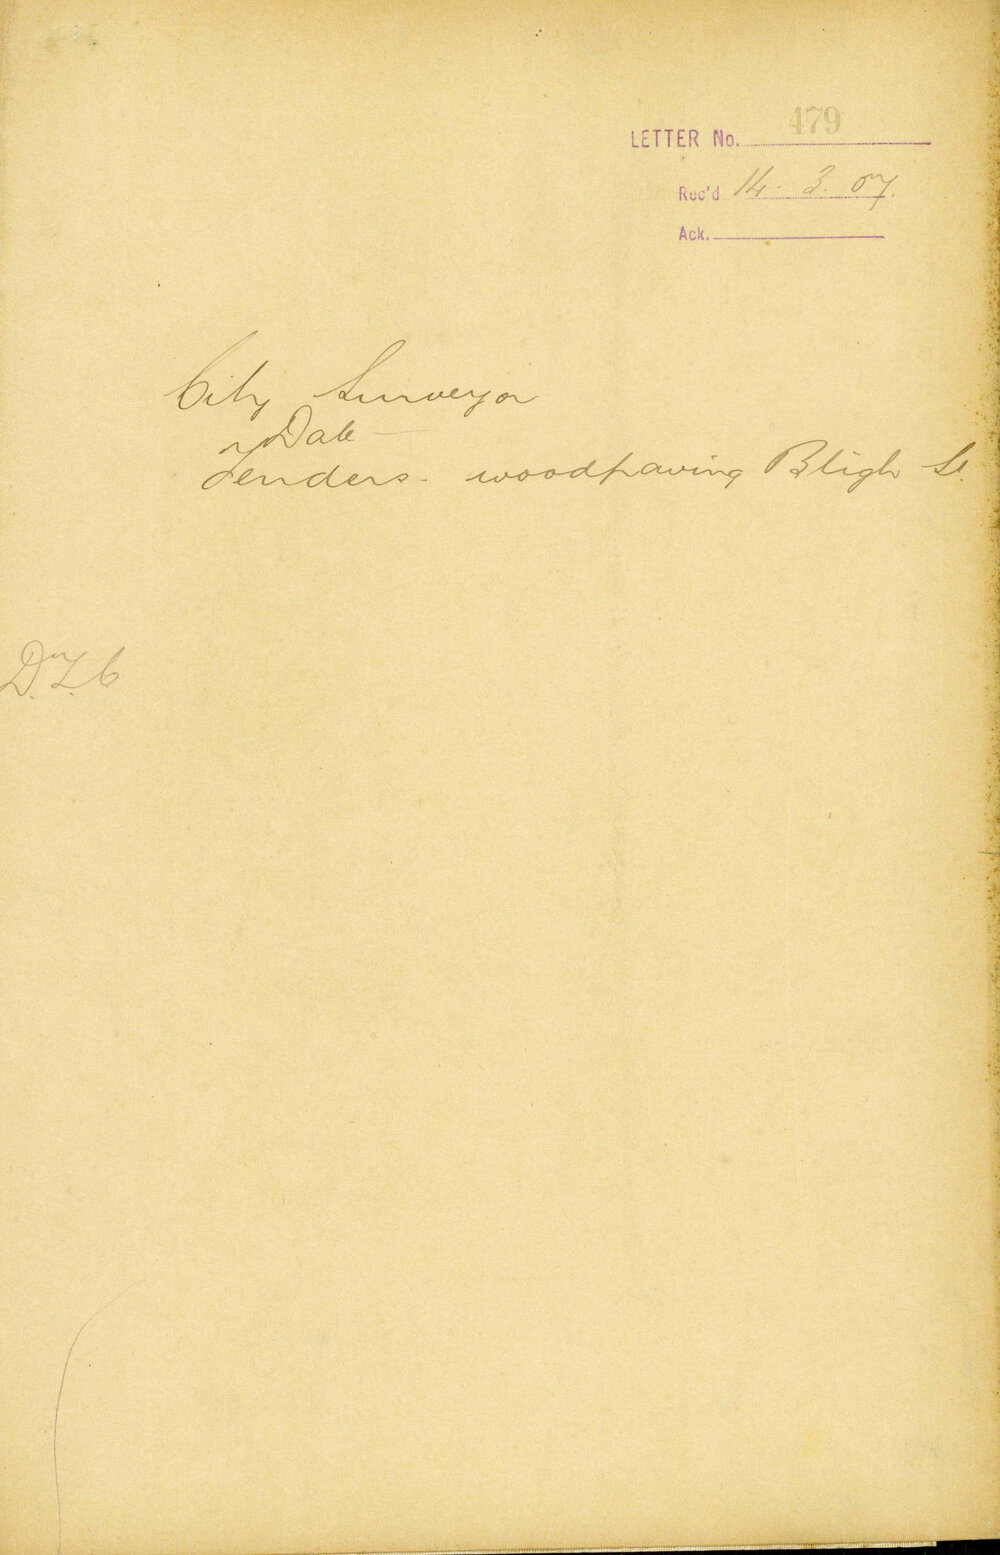 LETTER No. 479
Rec'd 14. 3. 07.
Ack.
City Surveyor
Date
Tenders - woodpaving Bligh St.
D.T.C